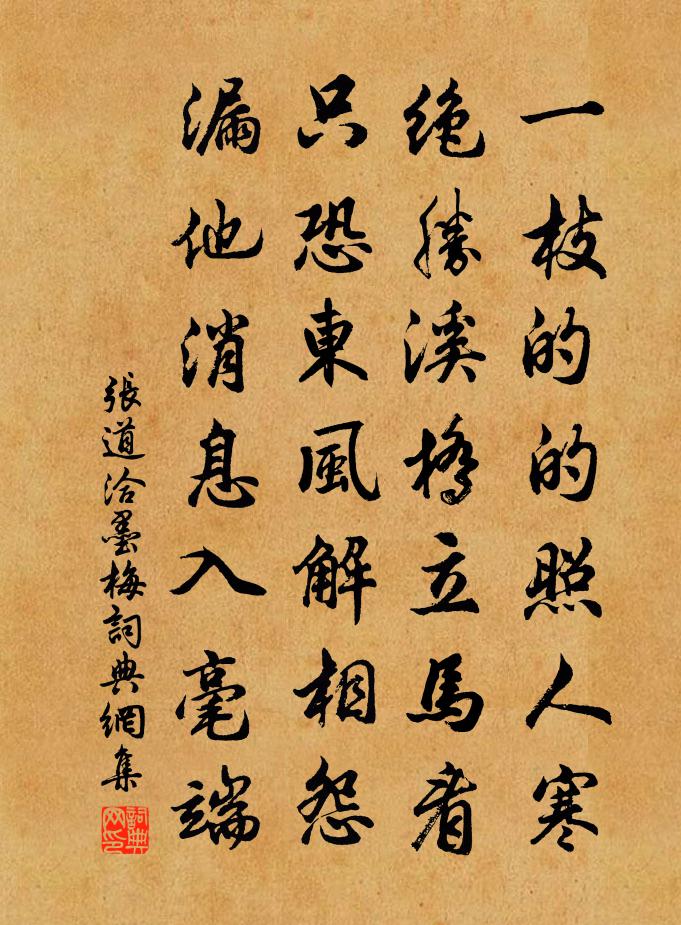 一枝的的照人寒
絶勝溪橋立馬看
只恐東風解相怨
漏他消息入毫端
張道洽墨梅詞典網集
詞典网印